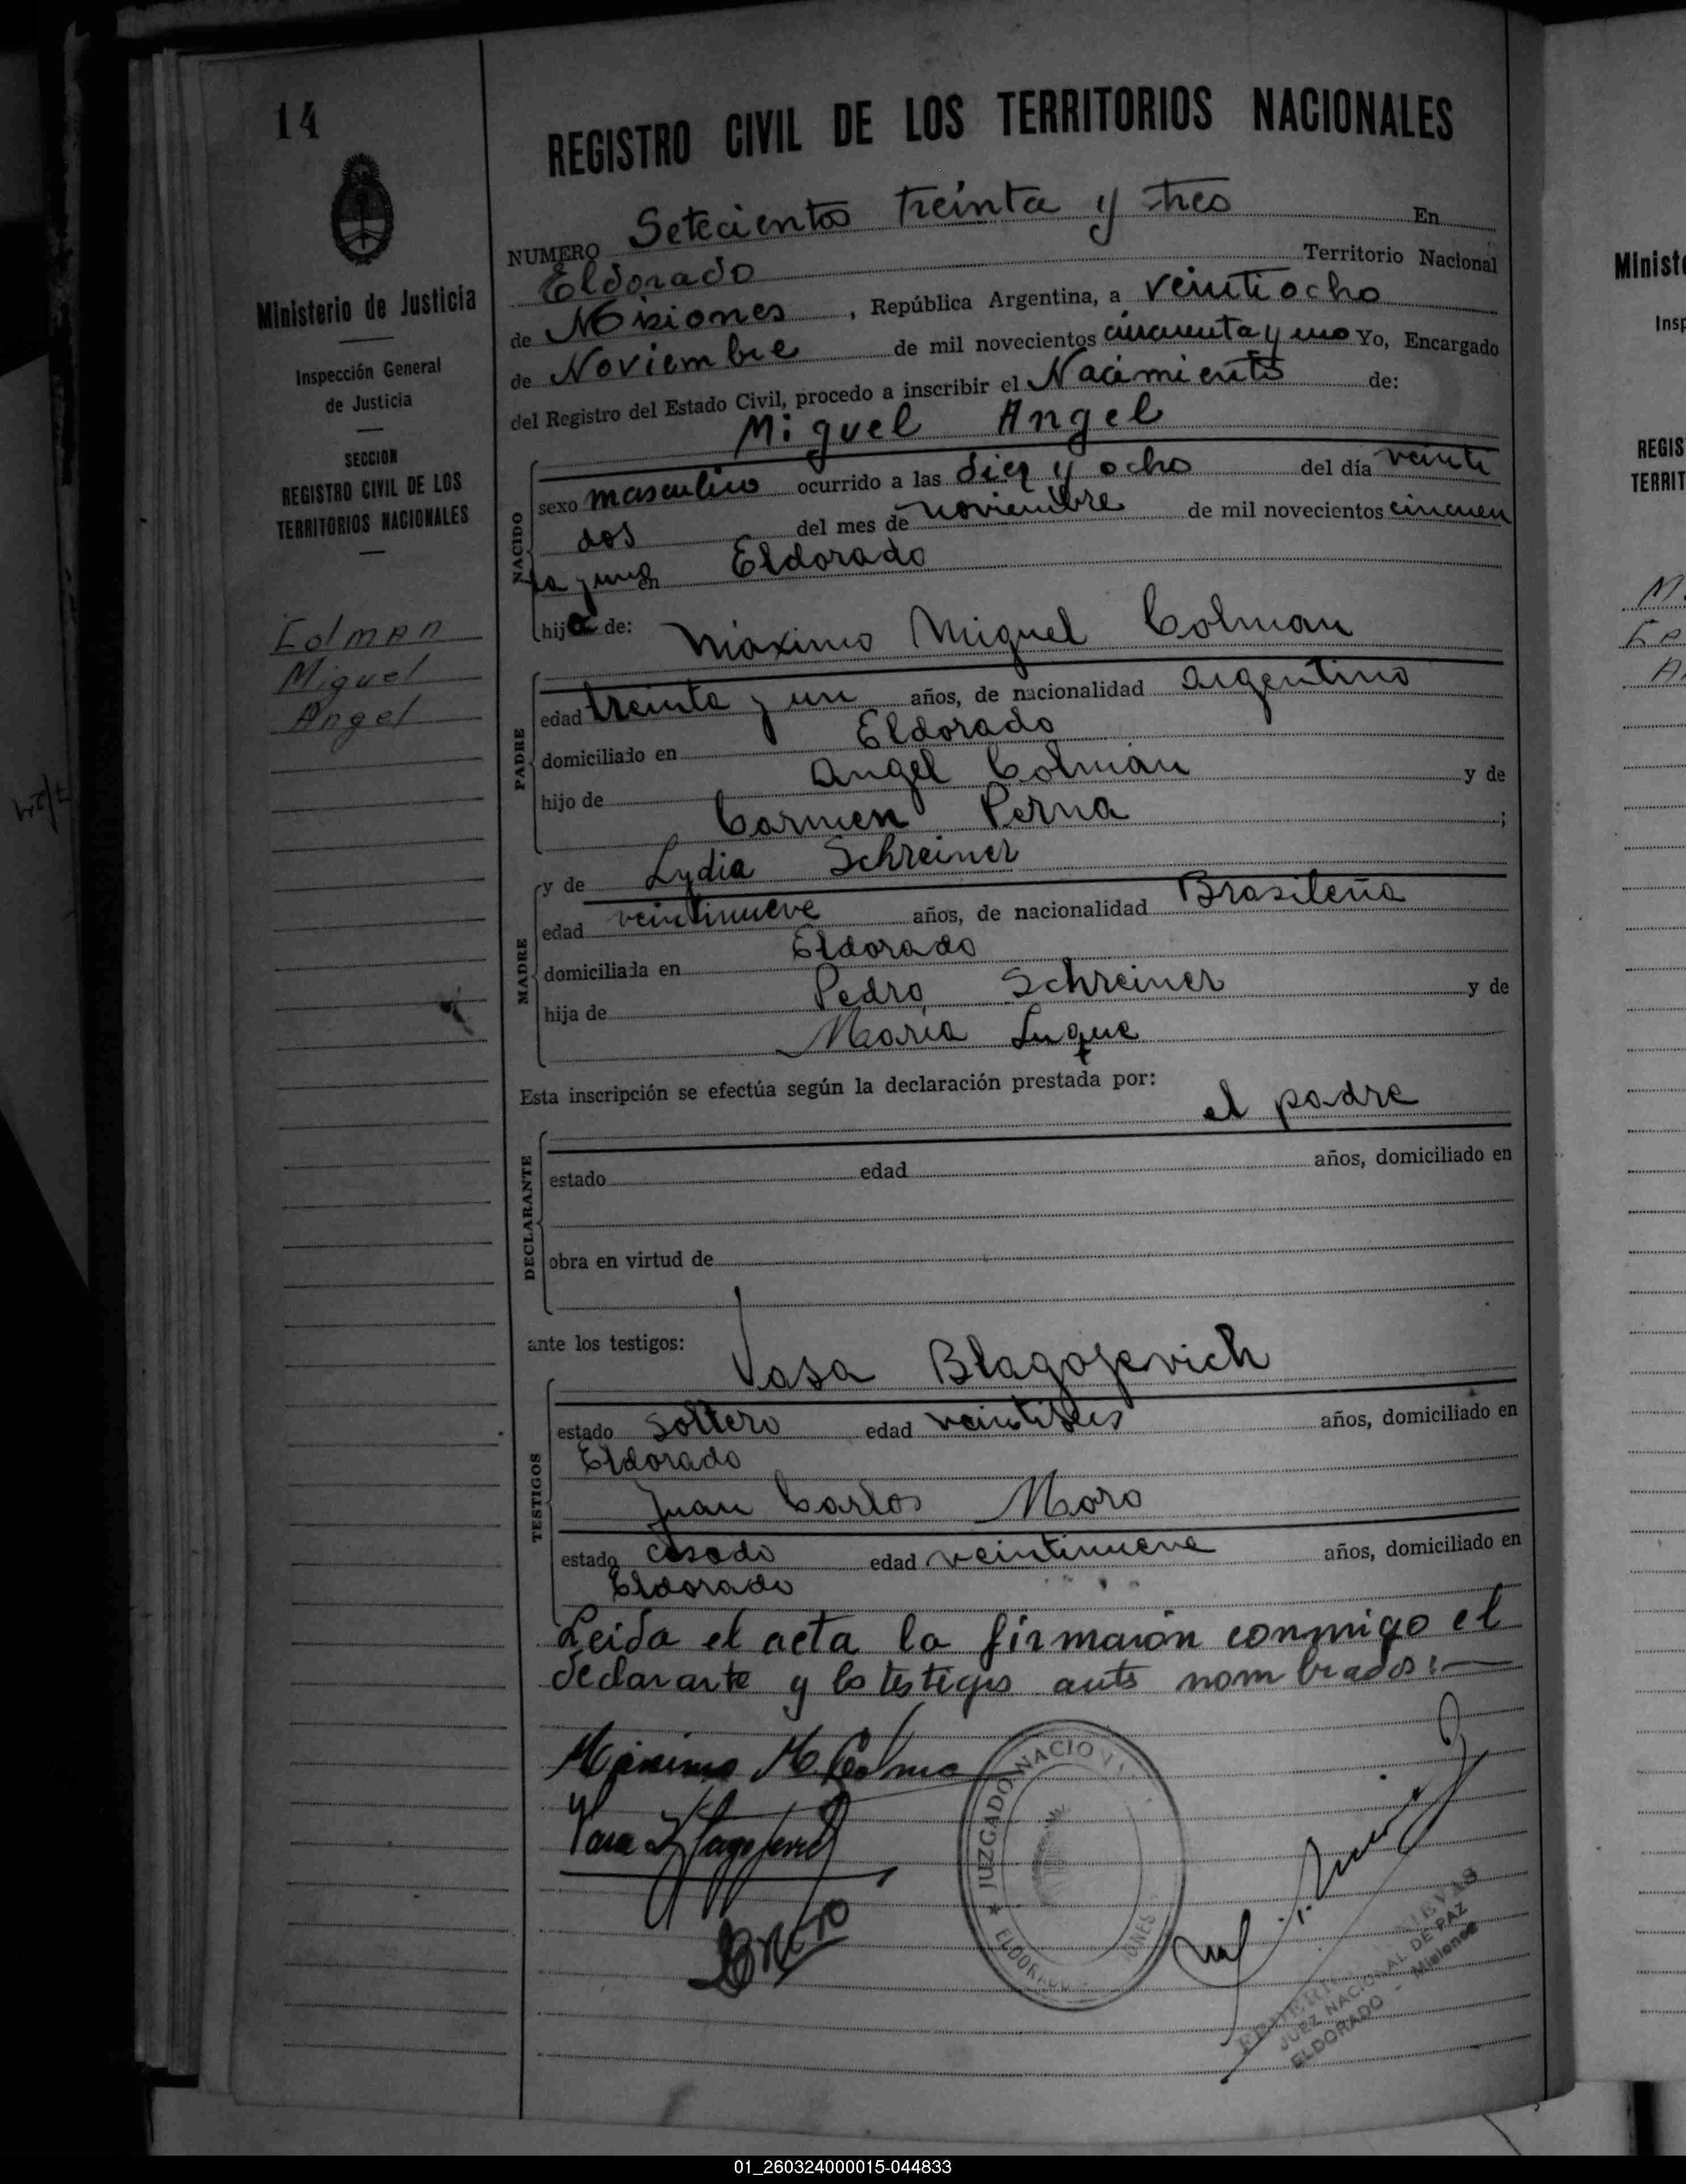 14
REGISTRO CIVIL DE LOS TERRITORIOS NACIONALES
NUMERO Setecientos treinta y tres En
Eldorado Territorio Nacional
de Misiones, República Argentina, a veintiocho
de Noviembre de mil novecientos cincuenta y uno Yo, Encargado
del Registro del Estado Civil, procedo a inscribir el Nacimiento de:
Miguel Angel
Ministerio de Justicia
Inspección General
de Justicia
SECCION
REGISTRO CIVIL DE LOS
TERRITORIOS NACIONALES
Colman
Miguel
Angel
NACIDO
sexo masculino ocurrido a las diez y ocho del día veinti
dos del mes de noviembre de mil novecientos cincuen
ta y uno en Eldorado
hijo de: Máximo Miguel Colman
PADRE
edad treinta y un años, de nacionalidad argentino
domiciliado en Eldorado
hijo de Angel Colman y de
Carmen Perna;
MADRE
y de Lydia Schreiner
edad veintinueve años, de nacionalidad Brasileña
domiciliada en Eldorado
hija de Pedro Schreiner y de
María Luque
Esta inscripción se efectúa según la declaración prestada por:
el padre
DECLARANTE
estado edad años, domiciliado en
obra en virtud de
ante los testigos:
Vasa Blagojevich
TESTIGOS
estado Soltero edad años, domiciliado en
Eldorado
Juan Carlos Moro
estado casado edad veintinueve años, domiciliado en
Eldorado
Leida el acta la firmaron conmigo el
declarante y los testigos antes nombrados:—
Máximo M. Colman
JUZGADO NACIO
ELDORADO
IONES
JUEZ NACIONAL DE PAZ
ELDORADO - Misiones
Minist
Insp
REGIS
TERRIT
01_260324000015-044833